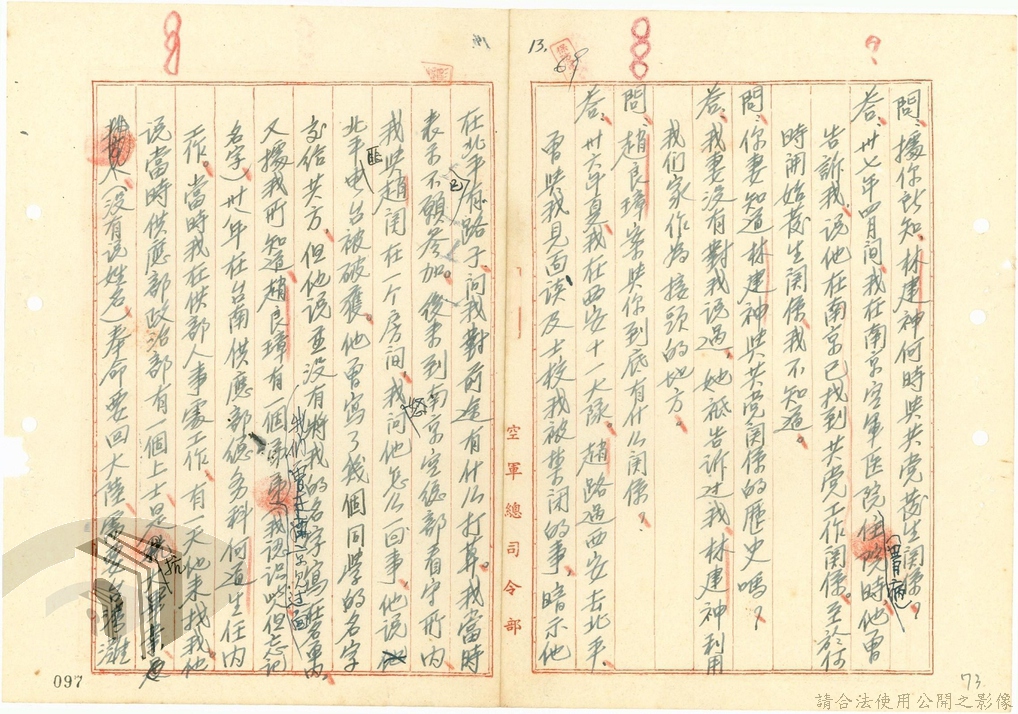 13.
69
問：據你所知，林建神何時與共党發生関係？
答：卅七年四月間，我在南京空軍医院住院時（胃病）他曾
告訴我，说他在南京已找到共党工作関係。至於何
時開始發生関係，我不知道。
問：你妻知道林建神與共党関係的歷史嗎？
答：我妻没有對我说過，她祗告訴过我，林建神利用
我们家作為接頭的地方。
問：趙良璋案與你到底有什么関係？
答：卅六年夏，我在西安十一大隊。趙路过西安去北平，
曾與我見面，谈及士校我被禁闭的事，暗示他
空軍總司令部
73
在北平有路子，问我對前途有什么打算。我當時
表示不願参加。後来到南京空總部看守所内
我與趙関在一个房间，我问他怎么回事，他说
北平匪电台被破獲。他曾寫了幾個同学的名字
交给共方，但他说並没有將我的名字寫在名單内
又據我所知道，趙良璋有一個弟弟（我認识，但忘记
名字）卅八年在台南供應部總务科何道生任内
工作。當時我在供部人事處工作，有一天他来找我，他
说當時供應部政治部有一個上士是
（没有说姓名）奉命要回大陸，
097
請合法使用公開之影像